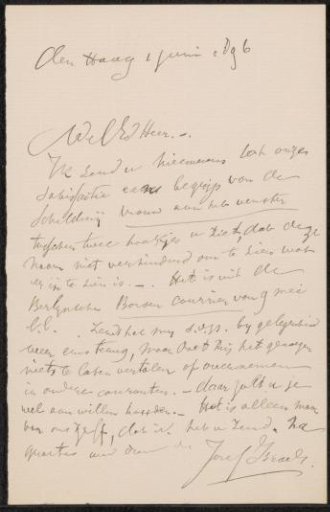 Den Haag 1 Juni 1896
WelEd Heer. -
Ik zend u hiernevens tot onze
satisfactie eene begrijp van de
schilderij vrouw aan het venster
tusschen twee haakjes u ziet, dat deze
naam niet verhinderd om te zien wat
er in te zien is. - Het is uit de
Berlijnsche Borsen courrier van 9 mei
l.l. Zend het my s.v.p. by gelegenheid
weer terug, maar
niets te laten vertalen of overnemen
in andere couranten. - daar zult u je
wel aan willen houden. - Het is alleen maar
dat ik het u zend.
Jozef Israels